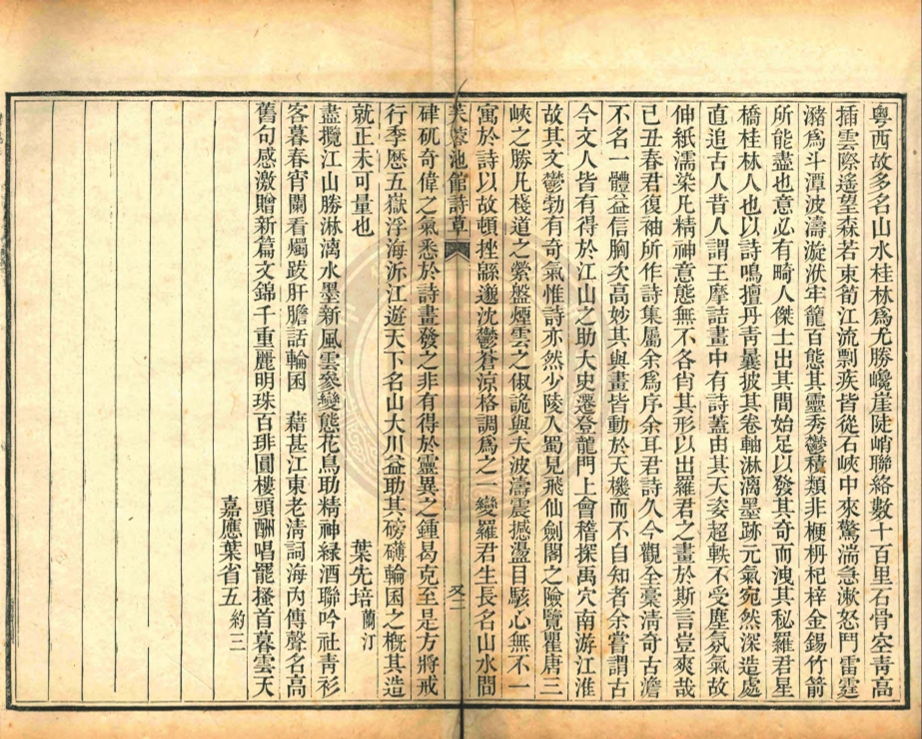 粵西故多名山水桂林爲尤勝巉崖陡峭聯絡數十百里石骨空青高
插雲際遙望森若束筍江流剽疾皆從石峽中來驚湍急漱怒鬥雷霆
瀦爲斗潭波濤漩洑牢籠百態其靈秀鬱積類非梗枬杞梓金錫竹箭
所能盡也意必有畸人傑士出其間始足以發其奇而洩其秘羅君星
橋桂林人也以詩鳴擅丹青曩披其卷軸淋漓墨跡元氣宛然深造處
直追古人昔人謂王摩詰畫中有詩蓋由其天姿超軼不受塵氛氣故
伸紙濡染凡精神意態無不各肖其形以出羅君之畫於斯言豈爽哉
己丑春君復袖所作詩集屬余爲序余耳君詩久今觀全稾淸奇古澹
不名一體益信胸次高妙其與畫皆動於天機而不自知者余嘗謂古
今文人皆有得於江山之助大史遷登龍門上會稽探禹穴南游江淮
故其文鬱勃有奇氣惟詩亦然少陵入蜀見飛仙劍閣之險覽瞿唐三
峽之勝凡棧道之縈盤煙雲之俶詭與夫波濤震撼盪目駭心無不一
寓於詩以故頓挫繇邈沈鬱蒼涼格調爲之一變羅君生長名山水間
芙蓉池館詩草 又二
硉矹奇偉之氣悉於詩畫發之非有得於靈異之鍾曷克至是方將戒
行李歷五嶽浮海泝江遊天下名山大川益助其磅礴輪囷之概其造
就正未可量也
葉先培蘭汀
盡攬江山勝淋漓水墨新風雲參變態花鳥助精神緑酒聯吟社青衫
客暮春宵闌看燭跋肝膽話輪囷 藉甚江東老淸詞海內傳聲名高
舊句感激贈新篇文錦千重麗明珠百琲圓樓頭酬唱罷搔首暮雲天
嘉應葉省五約三